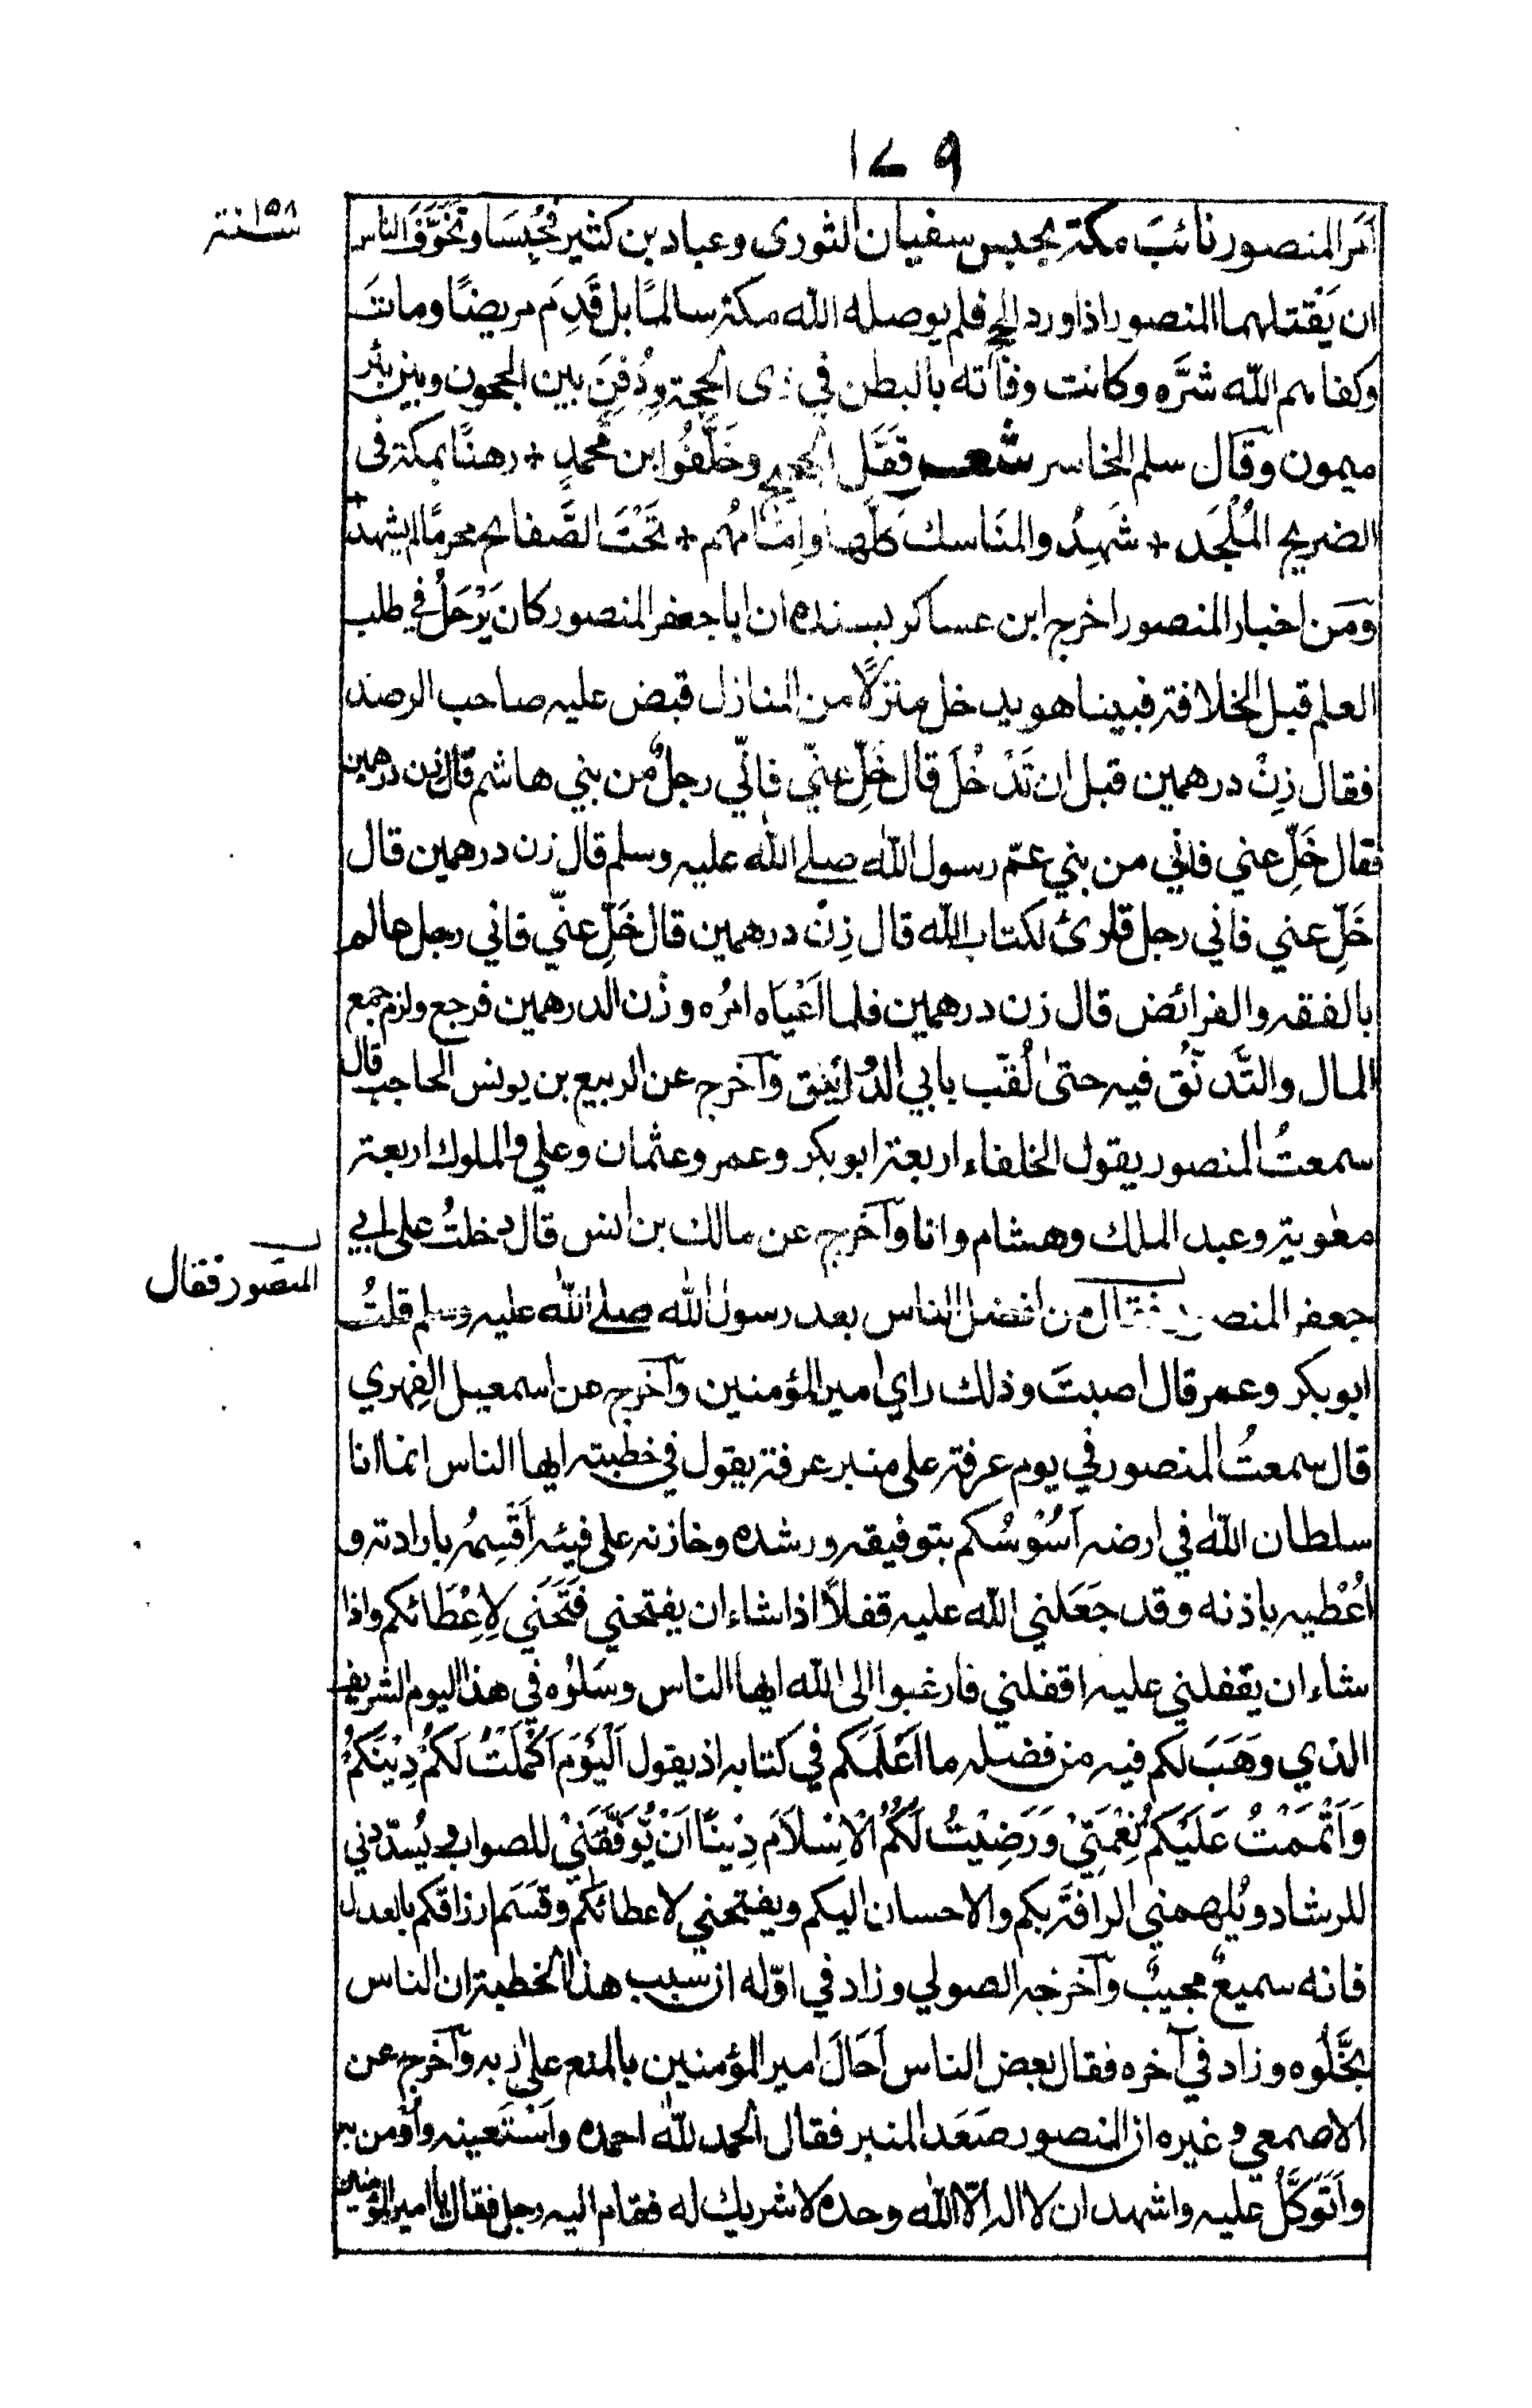 ١٧٩
سنة ١٥٨
اَمَر المنصور نائبَ مكة بحبس سفيان الثورى وعباد بن كثير فحُبِسَا وتَخَوَّفَ الناس
ان يَقْتلهما المنصور اذا ورد الحج فلم يوصله الله مكة سالمًا بل قَدِمَ مريضًا وماتَ
وكفاهم الله شرَّه وكانت وفاته بالبطن في ذى الحجة ودُفِنَ بين الحجون وبين بئر
ميمون وقال سلم الخاسر شعر قَفَلَ الحجيج وخَلَّفُوا ابن محمدٍ + رهنًا بمكة فى
الضريح المُلْحَد + شَهِدُوا المنَاسك كلَّها وامَامُهم + تَحْتَ الصَّفائح محرمًا لم يشهد +
ومن اخبار المنصور اخرج ابن عساكر بسنده ان ابا جعفر المنصور كان يَرْحَلُ في طلب
العلم قبل الخلافة فبينا هو يدخل منزلًا من المنازل قبض عليه صاحب الرصد
فقال زِنْ درهمين قبل ان تَدْخُلَ قال خَلِّ عنّي فانّي رجلٌ من بني هاشم قال زن درهمين
فقال خَلِّ عني فاني من بني عمّ رسول الله صلى الله عليه وسلم قال زن درهمين قال
خَلِّ عني فاني رجل قارئ لكتاب الله قال زِنْ درهمين قال خَلِّ عنّي فاني رجل عالم
بالفقه والفرائض قال زن درهمين فلما اَعْيَاه امرُه وزن الدرهمين فرجع ولزم جمع
المال والتَّدنّق فيه حتى لُقّب بابي الدوانيق وآخرج عن الربيع بن يونس الحاجب قال
سمعتُ المنصور يقول الخلفاء اربعة ابوبكر وعمر وعثمان وعلي والملوك اربعة
معٰوية وعبد الملك وهشام وانا وآخرج عن مالك بن انس قال دخلتُ على ابي
جعفر المنصور فقال من افضل الناس بعد رسول الله صلى الله عليه وسلم قلتُ
المنصور فقال
ابوبكر وعمر قال اصبتَ وذلك راي امير المؤمنين وآخرج عن اسمعيل الفِهري
قال سمعتُ المنصور في يوم عرفة على منبر عرفة يقول في خطبته ايها الناس انما انا
سلطان الله في ارضه اَسُوْسُكم بتوفيقه ورشده وخازنه على فيئه اَقْسِمُه بارادته و
اُعْطيه باذنه وقد جَعَلني الله عليه قفلًا اذا شاء ان يفتحني فَتَحَني لِاِعْطَائكم واذا
شاء ان يقفلني عليه اقفلني فارغبوا الى الله ايها الناس وسَلُوْه في هذا اليوم الشريف
الذي وهَبَ لكم فيه من فضله ما اَعْلَمَكم في كتابه اذ يقول اَلْيَوْمَ اَكْمَلْتُ لَكُمْ دِيْنَكُمْ
وَاَتْمَمْتُ عَلَيْكُمْ نِعْمَتِيْ وَرَضِيْتُ لَكُمُ الْاِسْلَامَ دِيْنًا اَنْ يُّوَفِّقَنِيْ للصواب ويُسدّدني
للرشاد ويُلهمني الرافة بكم والاحسان اليكم ويفتحني لاعطائكم وقَسَم ارزاقكم بالعدل
فانه سميعٌ مجيبٌ وآخرجه الصولي وزاد في اوّله ان سبب هذا الخطبة ان الناس
بَخَّلُوه وزاد في آخره فقال بعض الناس اَحَالَ امير المؤمنين بالمنع على ربه وآخرج عن
الاصمعي وغيره ان المنصور صَعَد المنبر فقال الحمد لله احمده واَسْتَعينه واُوْمن به
واَتَوَكَّلُ عليه واشهد ان لا اله الّا الله وحده لا شريك له فقام اليه رجل فقال يا امير المؤمنين